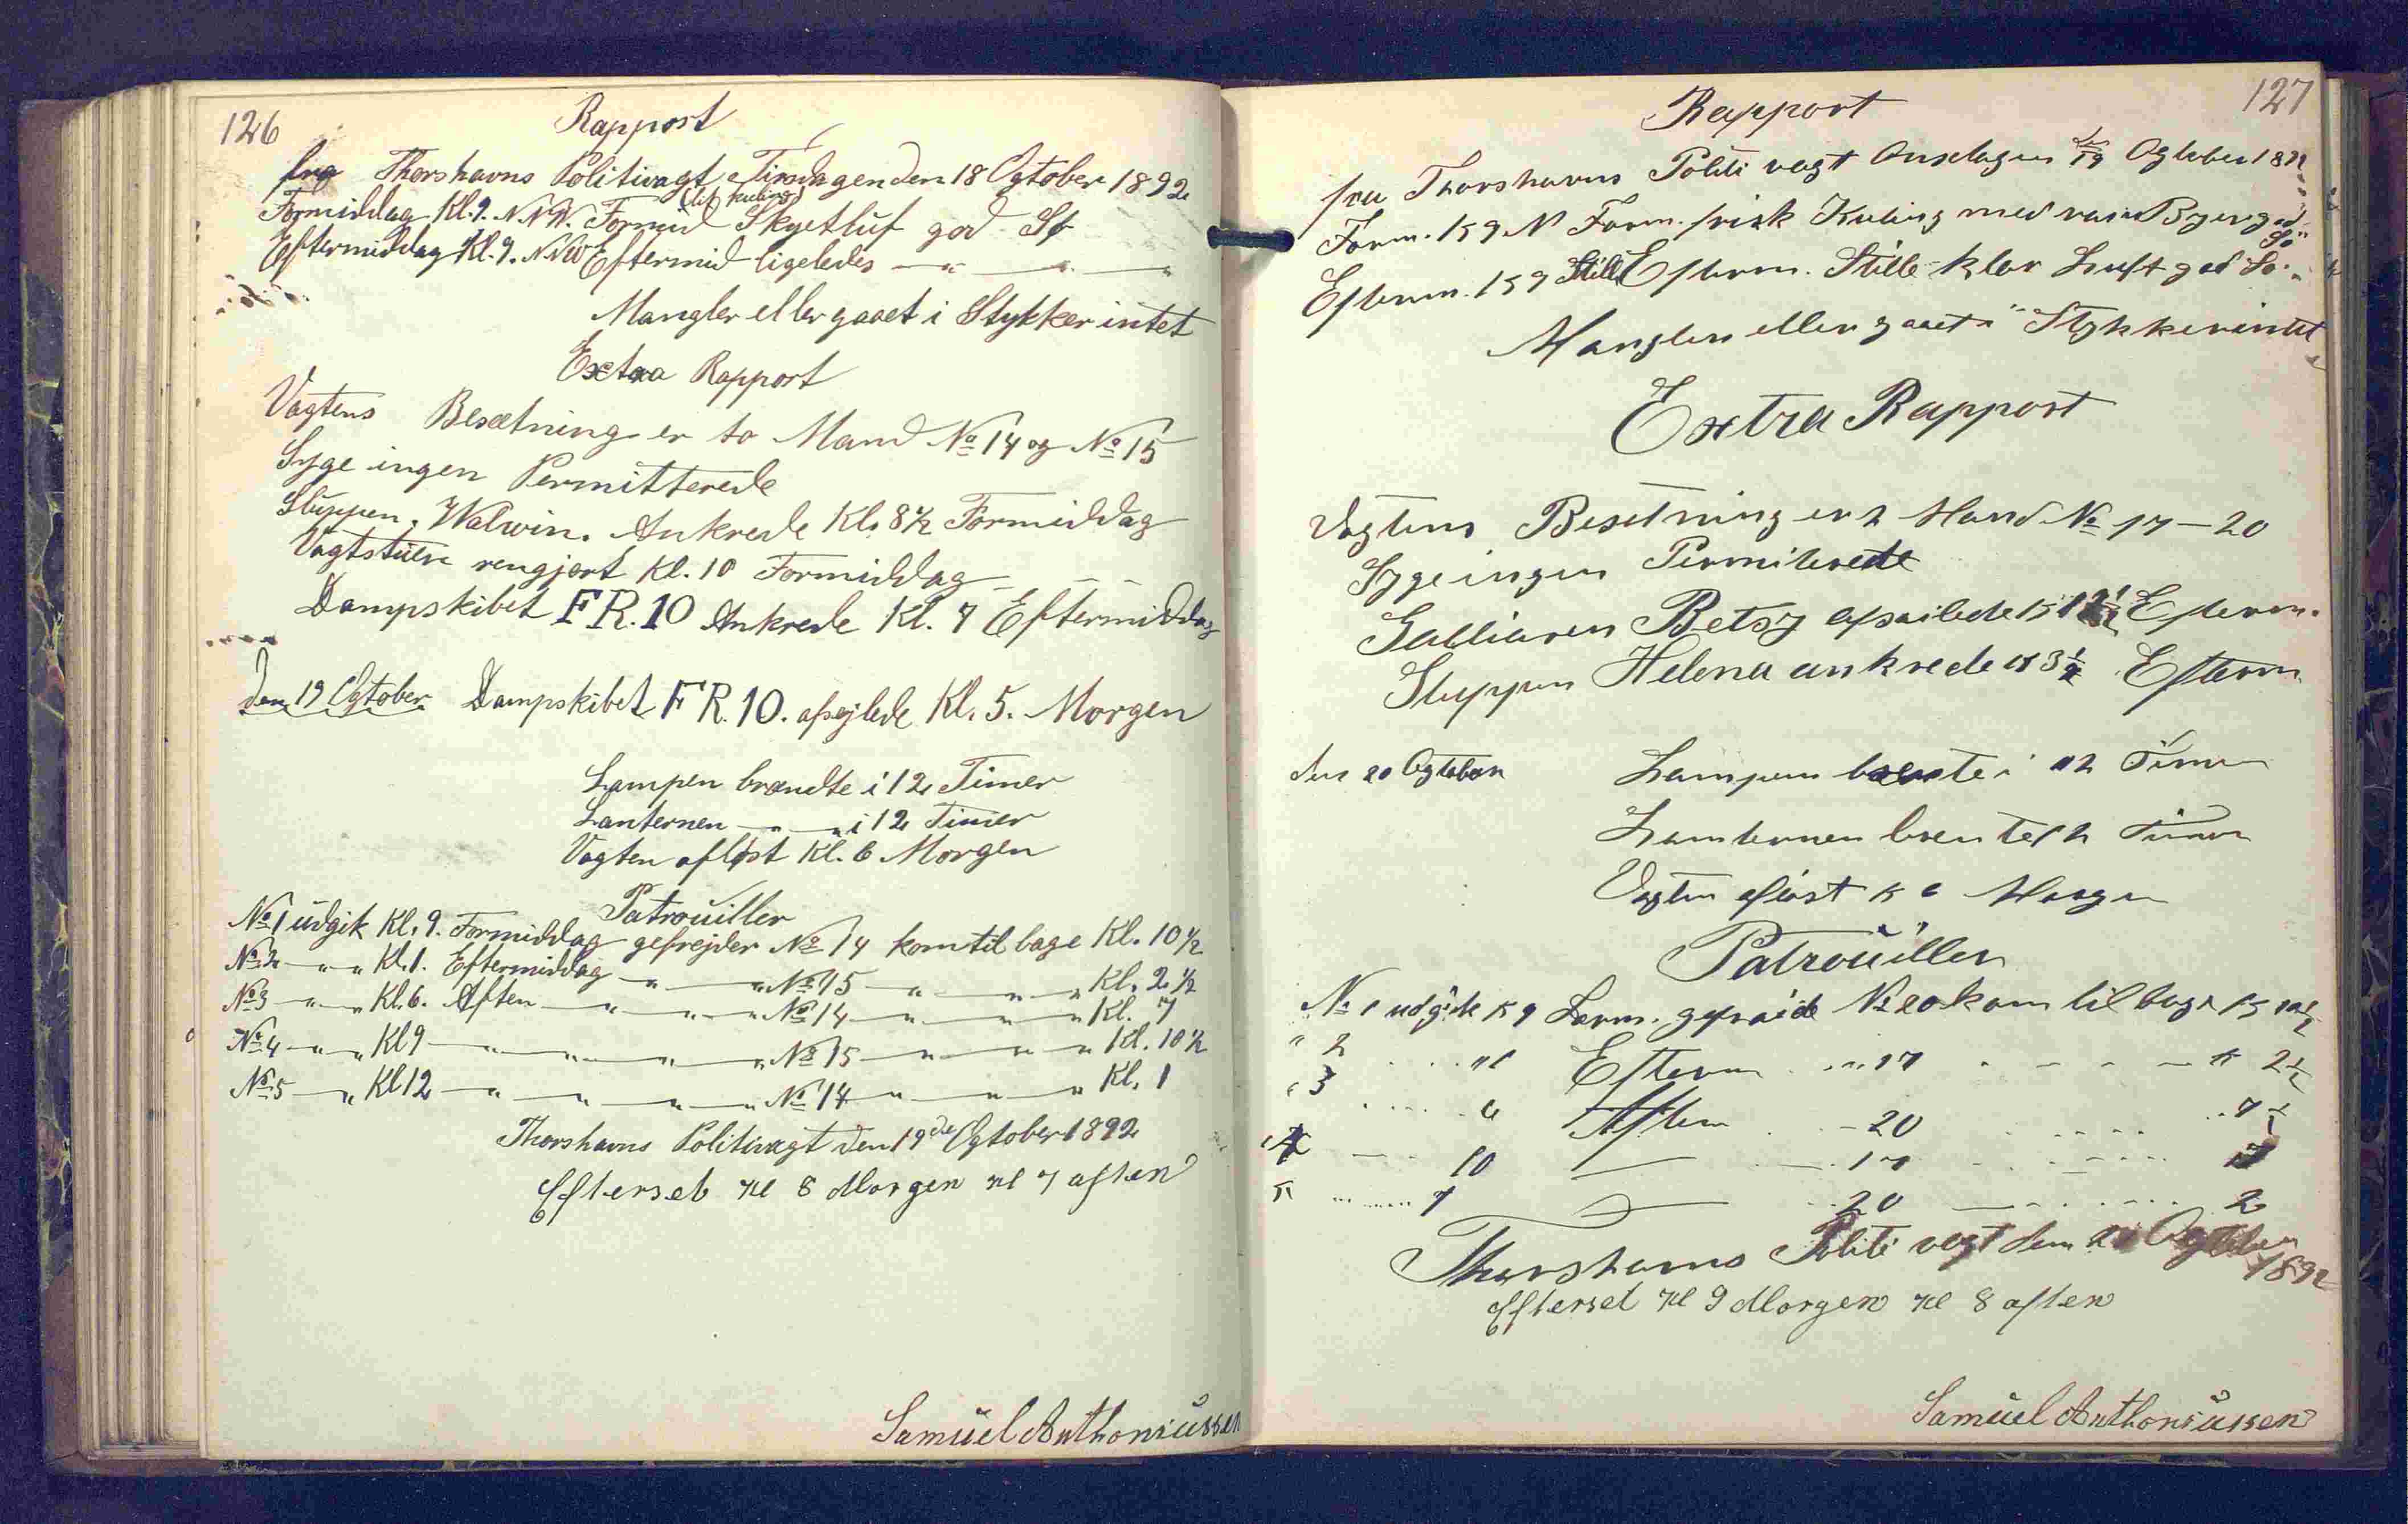 126
Rappost
fra Thorshavns Politivagt Tirsdagen den 18 Ogtober 1892
(lit kuling)
Formiddag Kl. 9. N.N.W. Formid Skyetluf god Sø
Eftermiddag Kl. 9. N.N.W Eftermid ligeledes — " — " — "
Mangler eller gaaet i Stykker intet
Extra Rapport
Vagtens Besætning er to Mand No 14 og No 15
Syge ingen Permitterede
Sluppen. Walwin. Ankrede Kl. 8 1/2 Formiddag
Vagtstuen rengjort Kl. 10 Formiddag
Dampskibet FR. 10 Ankrede Kl. 7 Eftermiddag
den 19 Ogtober Dampskibet FR. 10. afsejlede Kl. 5. Morgen
Lampen brændte i 12 Timer
Lanternen — " — " i 12 Timer
Vagten afløst Kl. 6 Morgen
Patrouiller
No 1 udgik Kl. 9. Formiddag gefrejder No 14 kom tilbage Kl. 10 1/2
No 2 — " — " Kl. 1. Eftermiddag — " — " No 15 — " — " — " Kl. 2 1/2
No 3 — " — " Kl. 6. Aften — " — " — " No 14 — " — " — " Kl. 7
No 4 — " — " Kl 9 — " — " — " — " No 15 — " — " — " Kl. 10 1/2
No 5 — " Kl 12 — " — " — " — " No 14 — " — " — " Kl. 1
Thorshavns Politivagt den 19de Ogtober 1892
Efterset Kl 8 Morgen Kl 7 aften
Samuel Anthoniussen
127
Rapport
fra Thorshavns Politi vagt Onsdagen den 19 Ogtober 1892
Form. Kl 9 N Form. frisk Kuling med rain Byer god Sö
Efterm. Kl 9 Stille Efterm. Stille klar Luft god Sö
Mangler eller gaaet i Stykker intet
Extra Rapport
Vagtens Besetning er 2 Mand No 17 — 20
Syge ingen Permiterede
Galliasen Betsy afsailede Kl Efterm.
Sluppen Helena ankrede Kl 3 1/2 Efterm
den 20 Ogtober Lampen brente i 12 Timer
Lanternen brente 12 Timer
Vagten aflöst Kl 6 Morgen
Patrouiller
No 1 udgik Kl 9 Form. gefraide No 20 kom tilbage Kl 10 1/2
" 2 " 1 Efterm " 17 Kl 2 1/2
" 3 6 Aften — 20 7 1/2
4 10 — 17
5 20 2
Thorshavns Politi vagt den Ogtober 1892
Efterset Kl 9 Morgen Kl 8 aften
Samuel Anthoniussen